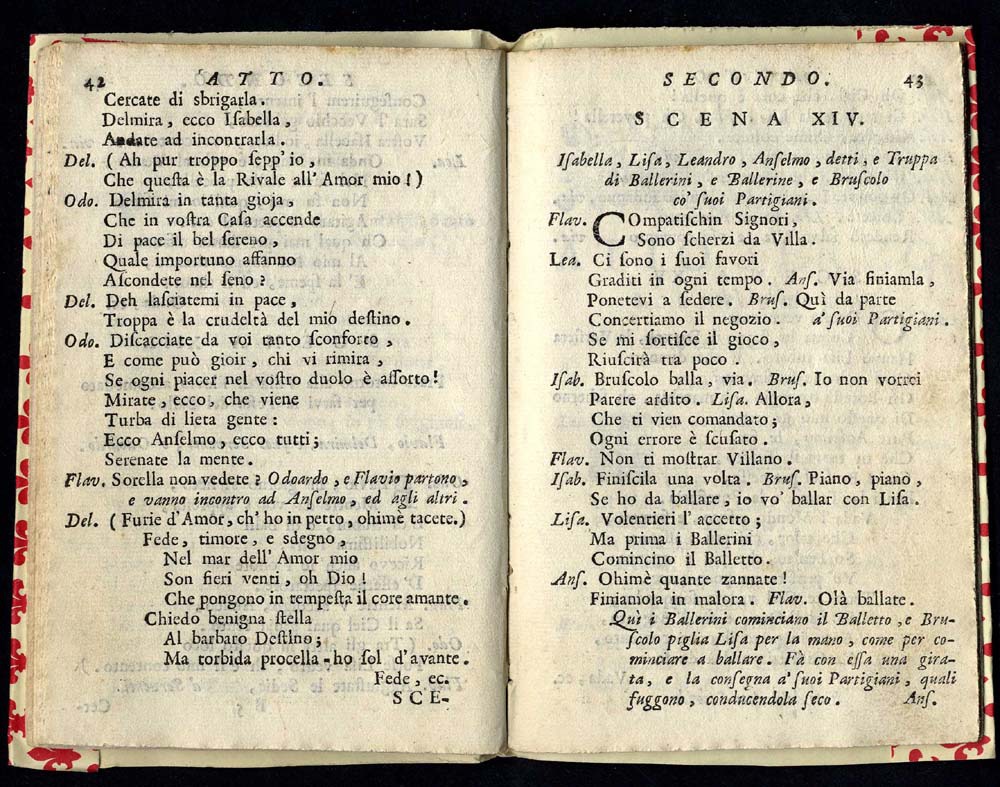 42 ATTO.
Cercate di sbrigarla.
Delmira, ecco Iſabella,
Andate ad incontrarla.
Del. (Ah pur troppo ſepp'io,
Che queſta è la Rivale all'Amor mio!)
Odo. Delmira in tanta gioja,
Che in voſtra Caſa accende
Di pace il bel ſereno,
Quale importuno affanno
Aſcondete nel ſeno?
Del. Deh laſciatemi in pace,
Troppa è la crudeltà del mio deſtino.
Odo. Diſcacciate da voi tanto ſconforto,
E come può gioir, chi vi rimira,
Se ogni piacer nel voſtro duolo è aſſorto!
Mirate, ecco che viene
Turba di lieta gente:
Ecco Anſelmo, ecco tutti;
Serenate la mente.
Flav. Sorella non vedete? Odoardo, e Flavio partono,
e vanno incontro ad Anſelmo, ed agli altri.
Del. (Furie d'Amor, ch'ho in petto, ohimè tacete.)
Fede, timore, e sdegno,
Nel mar dell'Amor mio
Son fieri venti, oh Dio!
Che pongono in tempeſta il core amante.
Chiedo benigna ſtella
Al barbaro Deſtino;
Ma torbida procella-ho ſol d'avante.
Fede, ec.
SCE-
SECONDO. 43
SCENA XIV.
Iſabella, Liſa, Leandro, Anſelmo, detti, e Truppa
di Ballerini, e Ballerine, e Bruſcolo
co' ſuoi Partigiani.
Flav. COmpatiſchin Signori,
Sono ſcherzi da Villa.
Lea. Ci ſono i ſuoi favori
Graditi in ogni tempo. Anſ. Via finiamla,
Ponetevi a ſedere. Bruſ. Quì da parte
Concertiamo il negozio. a' ſuoi Partigiani.
Se mi ſortiſce il gioco,
Riuſcirà tra poco.
Iſab. Bruſcolo balla, via. Bruſ. Io non vorrei
Parere ardito. Liſa. Allora,
Che ti vien comandato;
Ogni errore è ſcuſato.
Flav. Non ti moſtrar Villano.
Iſab. Finiſcila una volta. Bruſ. Piano, piano,
Se ho da ballare, io vo' ballar con Liſa.
Liſa. Volentieri l'accetto;
Ma prima i Ballerini
Comincino il Balletto.
Anſ. Ohimè quante zannate!
Finiamola in malora. Flav. Olà ballate.
Quì i Ballerini cominciano il Balletto, e Bru-
ſcolo piglia Liſa per la mano, come per co-
minciare a ballare. Fà con eſſa una gira-
ta, e la conſegna a' ſuoi Partigiani, quali
fuggono, conducendola ſeco. Anſ.